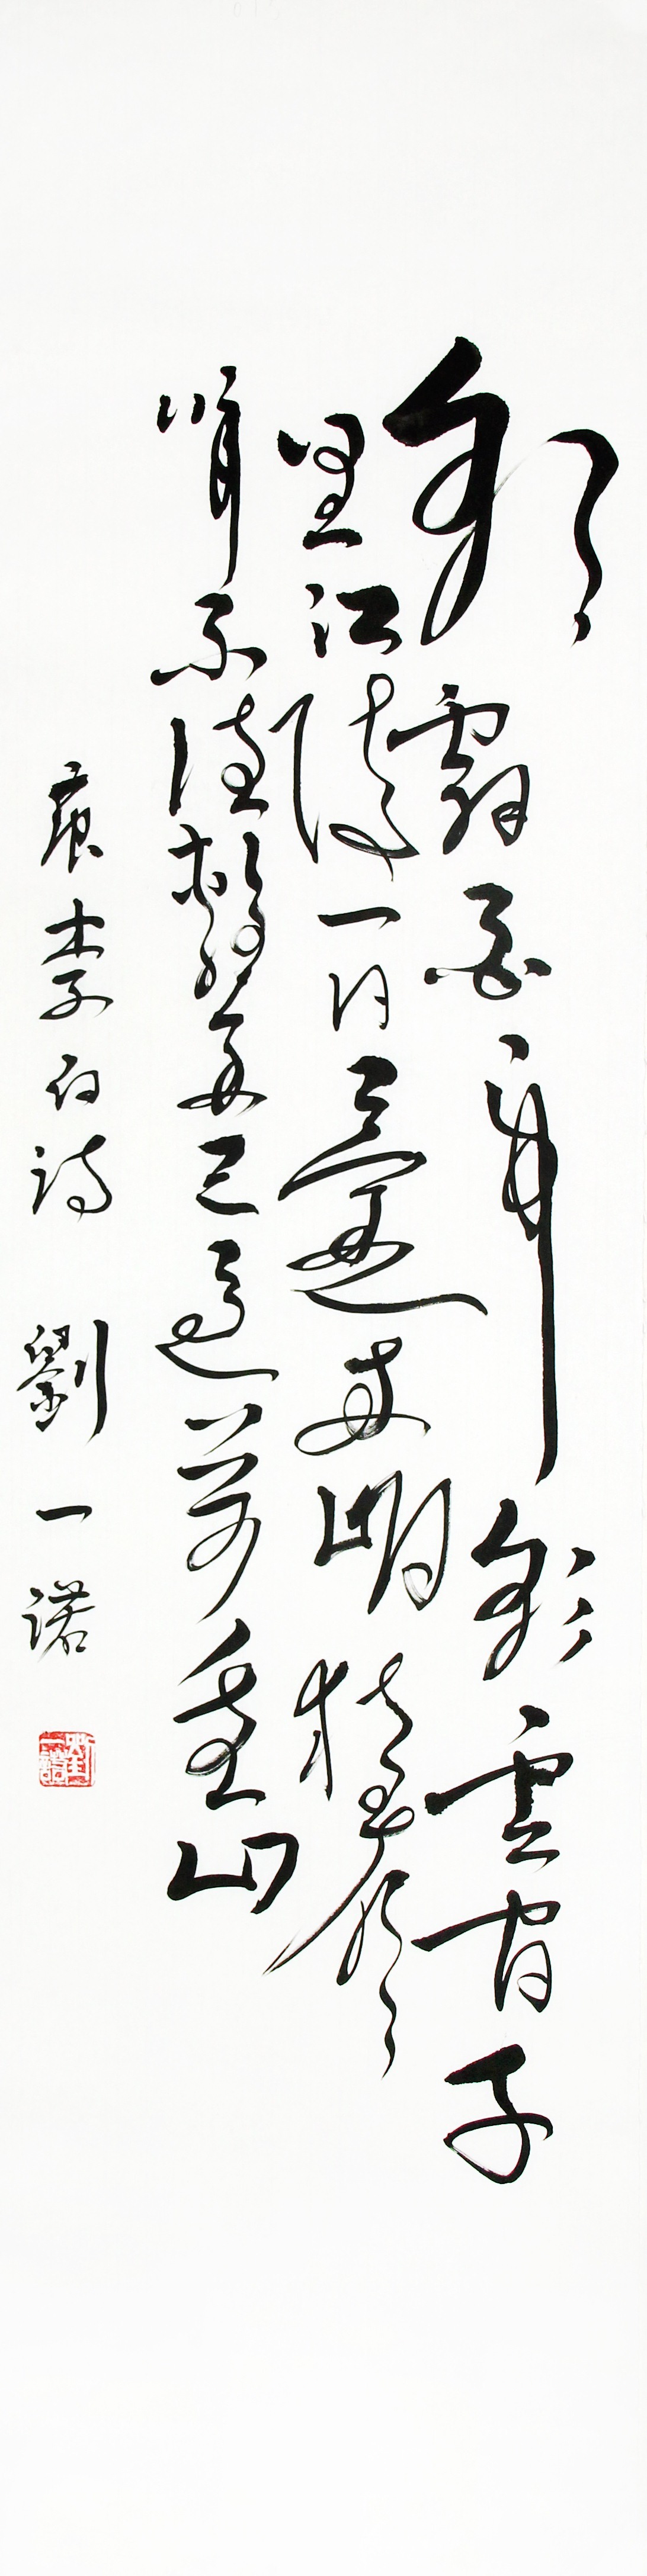 朝辭白帝彩雲間千
里江陵一日還兩岸猿聲
啼不住輕舟已過萬重山
唐李白詩 劉一諾
劉一諾